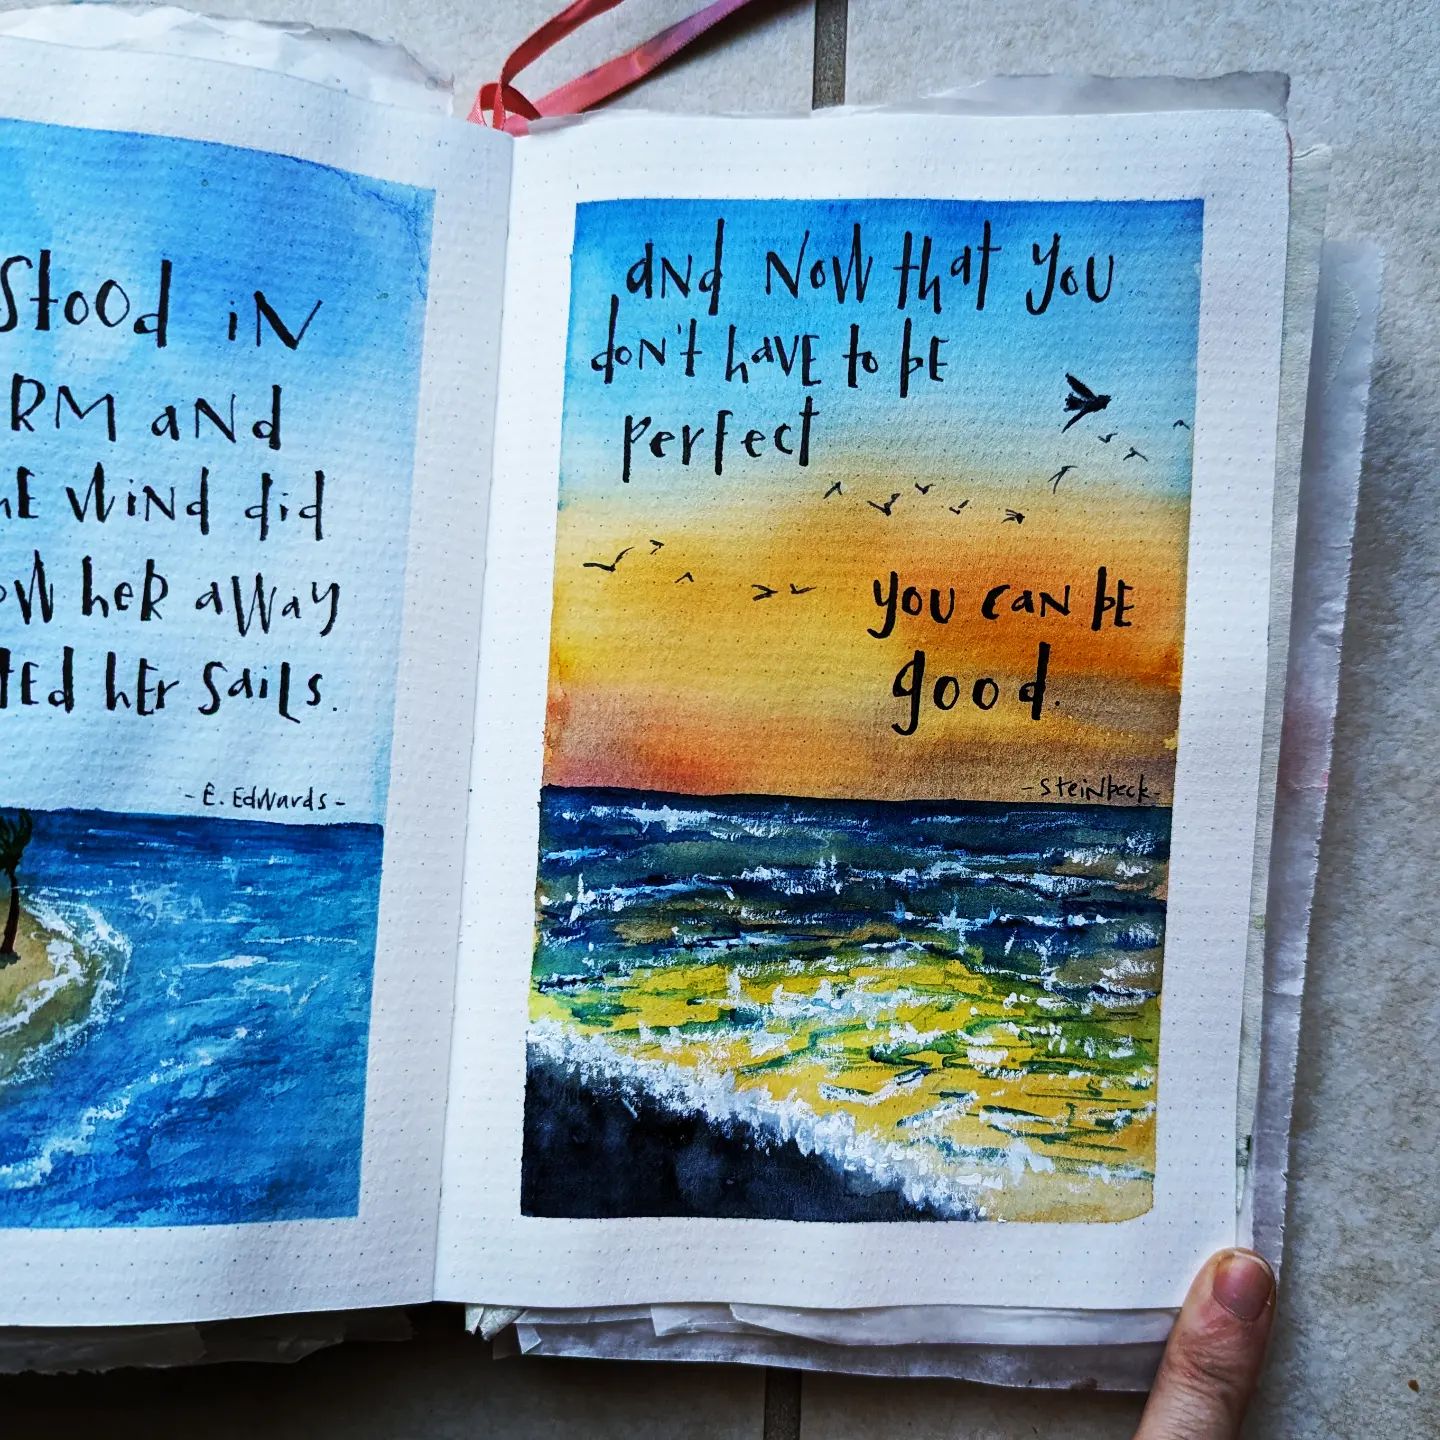 stood in
RM and
wind did
her away
her sails.
- E. Edwards -
and now that you
don't have to be
perfect
you can be
good.
- Steinbeck -